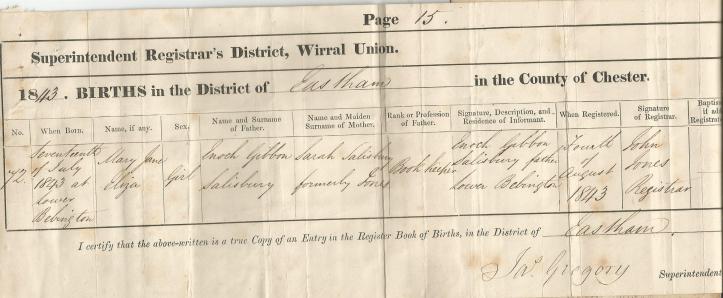 Page 15.
Superintendent Registrar's District, Wirral Union.
1843. BIRTHS in the District of Eastham in the County of Chester.
No.
When Born.
Name, if any.
Sex.
Name and Surname of Father.
Name and Maiden Surname of Mother.
Rank or Profession of Father.
Signature, Description, and Residence of Informant.
When Registered.
Signature of Registrar.
Baptis
if ad
Registrat
72.
Seventeenth
of July
1843 at
Lower
Bebington
Mary Jane
Eliza
Girl
Enoch Gibbon
Salisbury
Sarah Salisbury
formerly Jones
Book keeper
Enoch Gibbon
Salisbury father
Lower Bebington
Fourth
of
August
1843
John
Jones
Registrar
I certify that the above-written is a true Copy of an Entry in the Register Book of Births, in the District of Eastham.
Jas. Gregory Superintendent